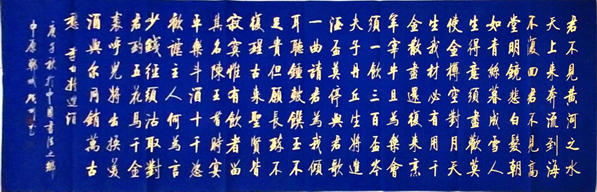 君不見黃河之水
天上來奔流到海
不復回君不見高
堂明鏡悲白髮朝
如青絲暮成雪人
生得意須盡歡莫
使金樽空對月天
生我材必有用千
金散盡還復來烹
羊宰牛且為樂會
須一飲三百杯岑
夫子丹丘生將進
酒杯莫停與君歌
一曲請君為我傾
耳聽鐘鼓饌玉不
足貴但願長醉不
復醒古來聖賢皆
寂寞惟有飲者留
其名陳王昔時宴
平樂斗酒十千恣
歡謔主人何為言
少錢徑須沽取對
君酌五花馬千金
裘呼兒將出換美
酒與爾同銷萬古
愁 李白將進酒
庚子秋於中國書法之鄉
中原